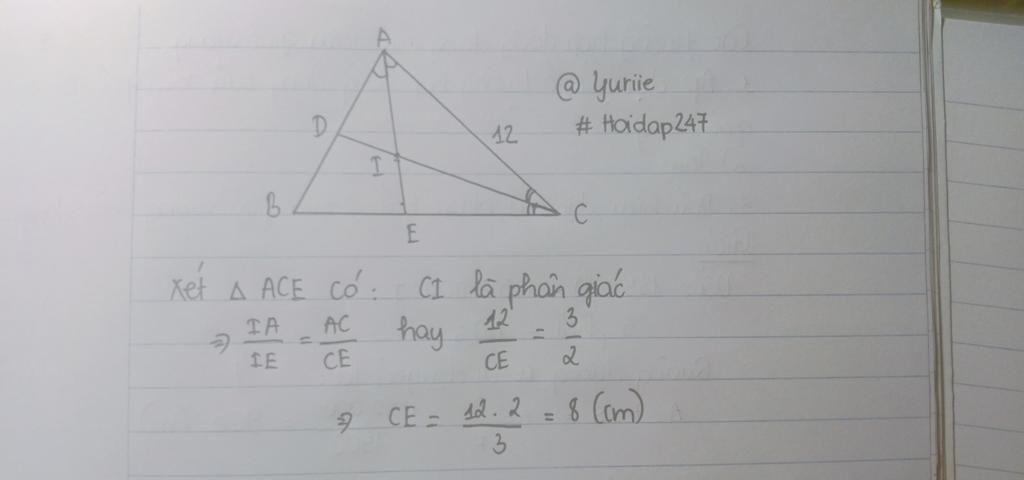 A
@ Yuriie
# Hoidap247
D
12
I
B
C
E
Xét Δ ACE có : CI là phân giác
⇒ IA/IE = AC/CE hay 12/CE = 3/2
⇒ CE = 12.2/3 = 8 (cm)